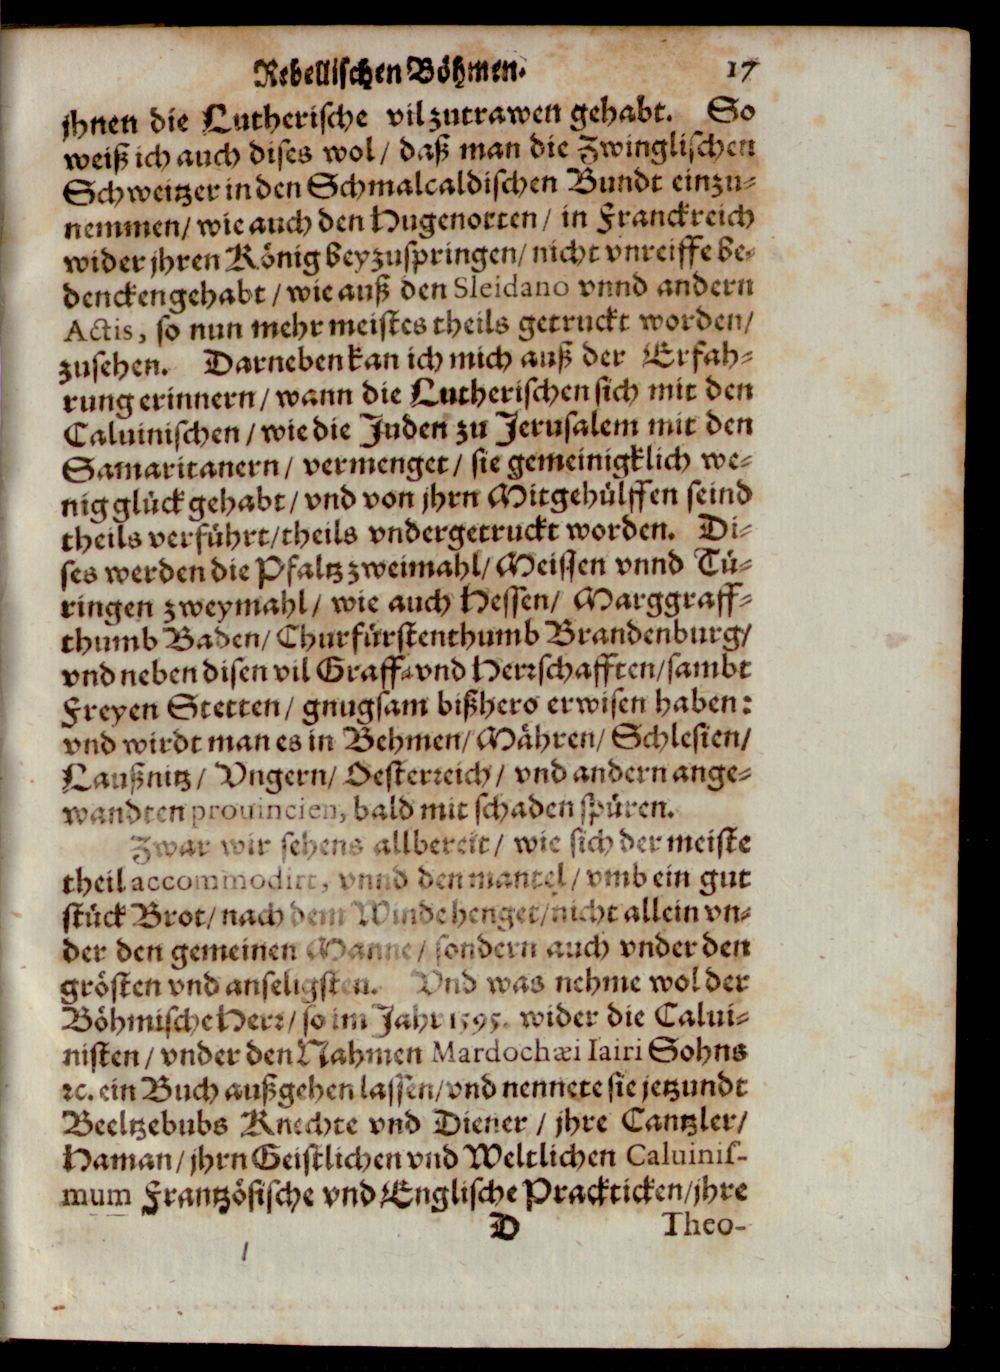 Rebellischen Böhmen. 17
jhnen die Lutherische vil zutrawen gehabt. So
weiß ich auch dises wol / daß man die Zwinglischen
Schweitzer in den Schmalcaldischen Bundt einzu-
nemmen / wie auch den Hugenotten / in Franckreich
wider jhren König beyzuspringen / nicht vnreiffe be-
dencken gehabt / wie auß den Sleidano vnnd andern
Actis, so nun mehr meistes theils getruckt worden /
zusehen. Darneben kan ich mich auß der Erfah-
rung erinnern / wann die Lutherischen sich mit den
Caluinischen / wie die Juden zu Jerusalem mit den
Samaritanern / vermenget / sie gemeinigklich we-
nig glück gehabt / vnd von jhrn Mitgehülffen seind
theils verführt / theils vndergetruckt worden. Di-
ses werden die Pfaltz zweimahl / Meissen vnnd Tü-
ringen zweymahl / wie auch Hessen / Marggraff-
thumb Baden / Churfürstenthumb Brandenburg /
vnd neben disen vil Graff- vnd Herrschafften / sambt
Freyen Stetten / gnugsam bißhero erwisen haben:
vnd wirdt man es in Behmen / Mähren / Schlesien /
Laußnitz / Vngern / Oesterreich / vnd andern ange-
wandten prouincien, bald mit schaden spüren.
Zwar wir sehens allbereit / wie sich der meiste
theil accommodirt, vnnd den mantel / vmb ein gut
stück Brot / nach dem Winde henget / nicht allein vn-
der den gemeinen Manne / sondern auch vnder den
grösten vnd anseligsten. Vnd was nehme wol der
Böhmische Herr / so im Jahr 1595. wider die Calui-
nisten / vnder den Nahmen Mardochæi Iairi Sohns
ꝛc. ein Buch außgehen lassen / vnd nennete sie jetzundt
Beeltzebubs Knechte vnd Diener / jhre Cantzler /
Haman / jhrn Geistlichen vnd Weltlichen Caluinis-
mum Frantzösische vnd Englische Prackticken / jhre
D Theo-